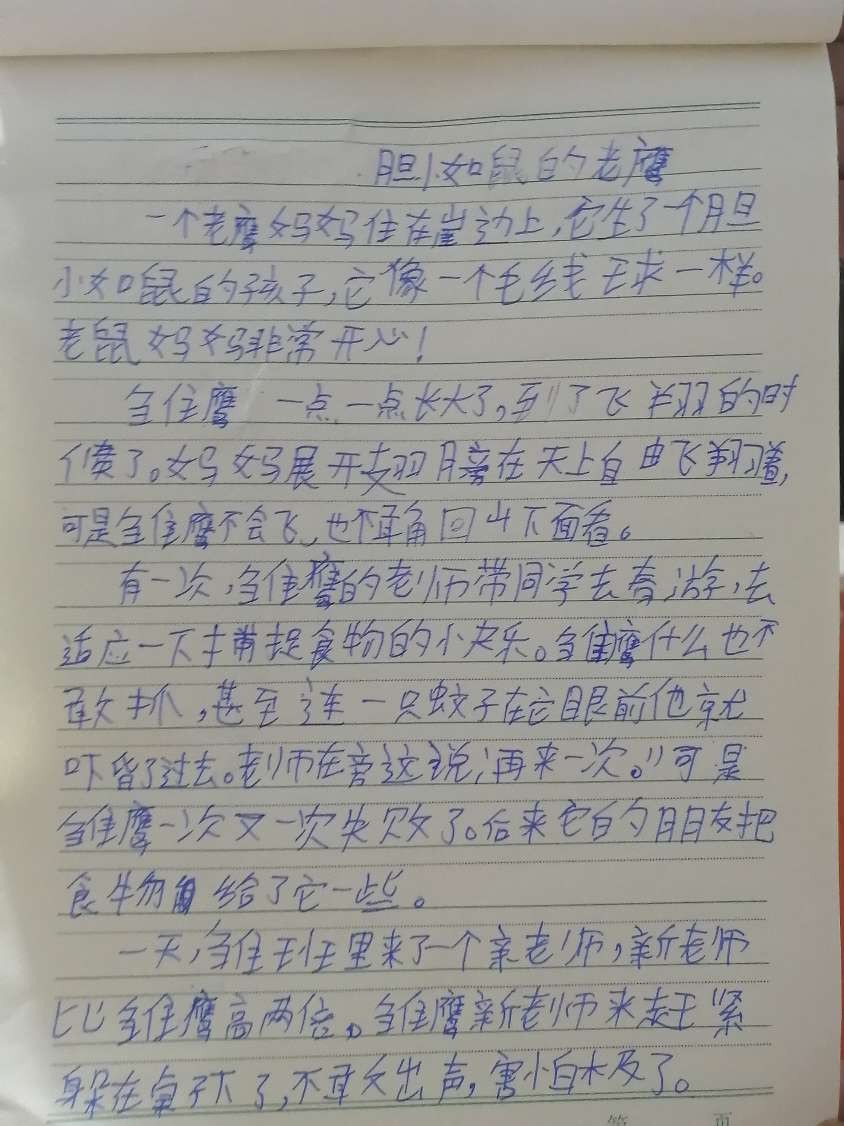 胆小如鼠的老鹰
一个老鹰妈妈住在崖边上,它生了一个胆
小如鼠的孩子,它像一个毛线球一样。
老鼠妈妈非常开心!
雏鹰一点一点长大了,到了飞翔的时
候了。妈妈展开翅膀在天上自由飞翔着,
可是雏鹰不会飞,也不敢回山下面看。
有一次,雏鹰的老师带同学去春游,去
适应一下捕捉食物的小快乐。雏鹰什么也不
敢抓,甚至连一只蚊子在它眼前他就
吓昏了过去。老师在旁这说,"再来一次。"可是
雏鹰一次又一次失败了。后来它的朋友把
食物给了它一些。
一天,雏班里来了一个亲老师,新老师
比雏鹰高两倍。雏鹰新老师来赶紧
躲在桌子下了,不敢出声,害怕极了。
第 页